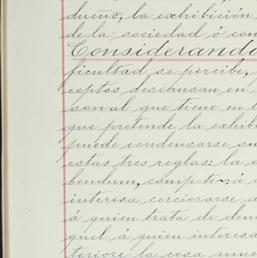 dueño, la exhibición
de la sociedad ó com
Considerando
ficultad se percibe,
ceptos descansan en
sonal que tiene en l
que pretende la exhib
puede condensarse su
estas tres reglas: la e
bendum, compete á a
interesa cerciorarse d
á quien trata de dem
quel á quien interesa
teriore la cosa mue